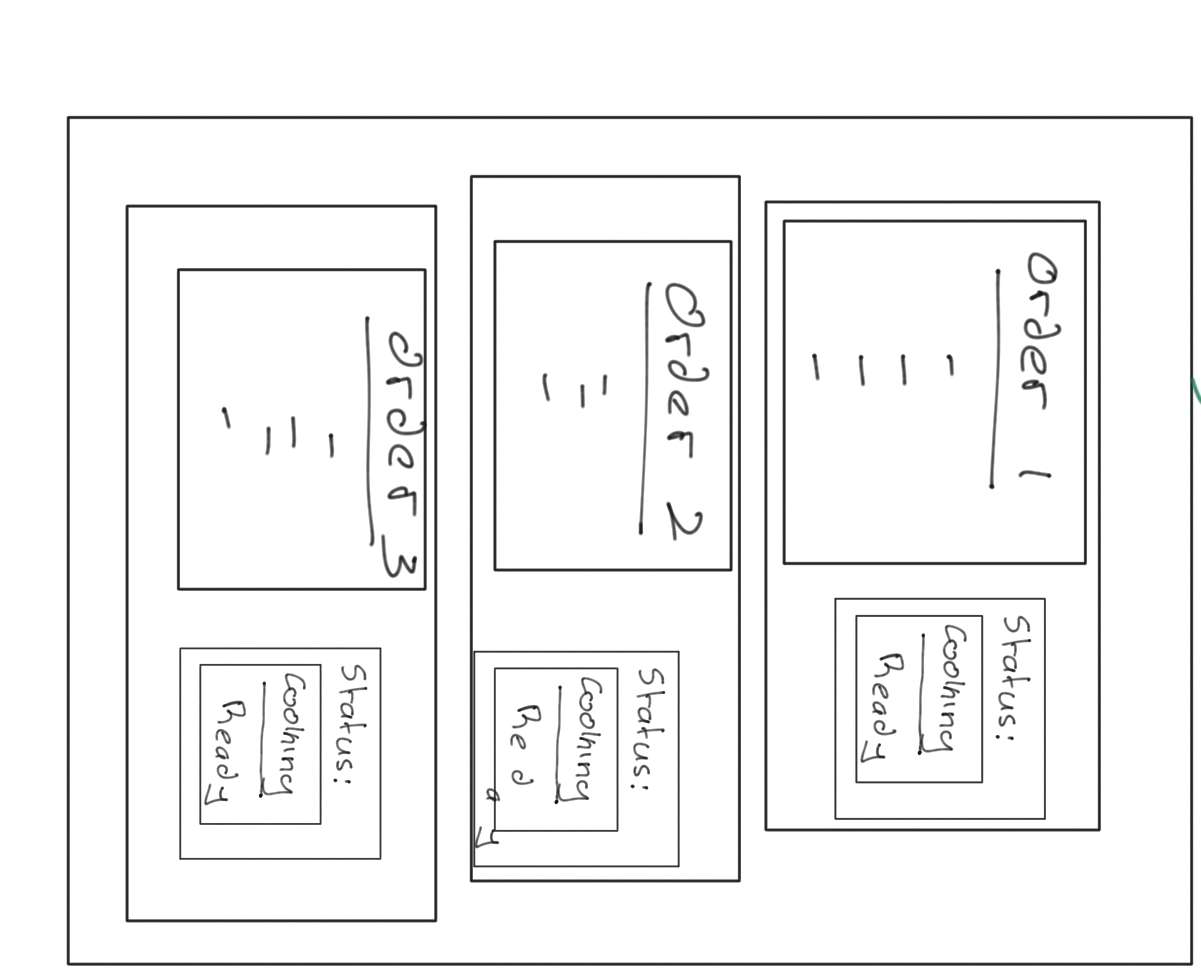 Order 1
Status:
Cooking
Ready
Order 2
Status:
Cooking
Re d a y
Order 3
Status:
Cooking
Ready